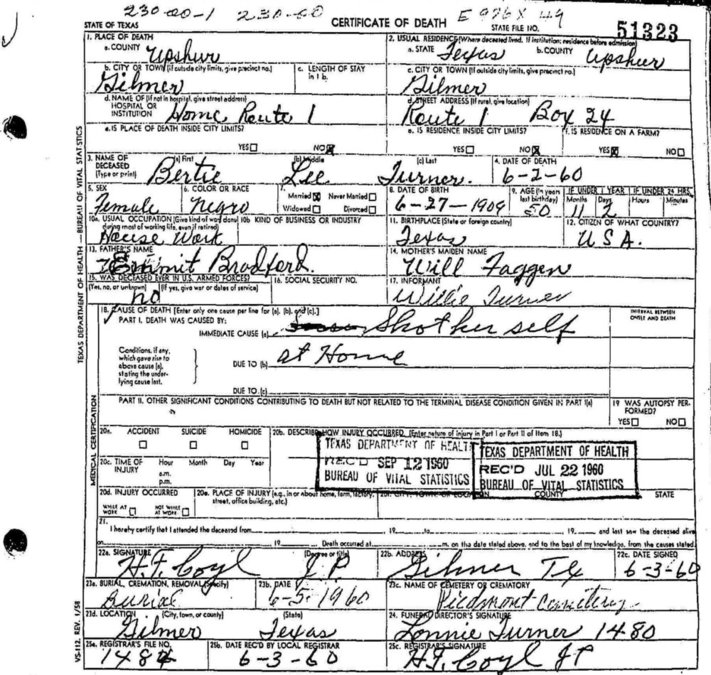 230-00-1 230-60 E 976X 49
STATE OF TEXAS CERTIFICATE OF DEATH STATE FILE NO. 51323
1. PLACE OF DEATH 2. USUAL RESIDENCE (Where deceased lived. If institution: residence before admission)
a. COUNTY Upshur a. STATE Texas b. COUNTY Upshur
b. CITY OR TOWN (If outside city limits, give precinct no.) c. LENGTH OF STAY in 1 b. c. CITY OR TOWN (If outside city limits, give precinct no.)
Gilmer Gilmer
d. NAME OF (If not in hospital, give street address) HOSPITAL OR INSTITUTION Home Route 1 d. STREET ADDRESS (If rural, give location) Route 1 Box 24
e. IS PLACE OF DEATH INSIDE CITY LIMITS? e. IS RESIDENCE INSIDE CITY LIMITS? f. IS RESIDENCE ON A FARM?
YES NO YES NO YES NO
3. NAME OF DECEASED (Type or print) (a) First (b) Middle (c) Last 4. DATE OF DEATH
Bertie Lee Turner 6-2-60
5. SEX 6. COLOR OR RACE 7. Married Never Married 8. DATE OF BIRTH 9. AGE (In years last birthday) IF UNDER 1 YEAR IF UNDER 24 HRS.
Widowed Divorced Months Days Hours Minutes
Female Negro 6-27-1909 50 11 2
10a. USUAL OCCUPATION (Give kind of work done during most of working life, even if retired) 10b. KIND OF BUSINESS OR INDUSTRY 11. BIRTHPLACE (State or foreign country) 12. CITIZEN OF WHAT COUNTRY?
House Work Texas U.S.A.
13. FATHER'S NAME 14. MOTHER'S MAIDEN NAME
Bradford Will Faggen
15. WAS DECEASED EVER IN U.S. ARMED FORCES? 16. SOCIAL SECURITY NO. 17. INFORMANT
(Yes, no, or unknown) (If yes, give war or dates of service)
no Willie Turner
18. CAUSE OF DEATH [Enter only one cause per line for (a), (b), and (c).] INTERVAL BETWEEN ONSET AND DEATH
PART I. DEATH WAS CAUSED BY:
IMMEDIATE CAUSE (a) Shot her self
Conditions, if any, which gave rise to above cause (a), stating the underlying cause last.
DUE TO (b) at Home
DUE TO (c)
PART II. OTHER SIGNIFICANT CONDITIONS CONTRIBUTING TO DEATH BUT NOT RELATED TO THE TERMINAL DISEASE CONDITION GIVEN IN PART I(a) 19 WAS AUTOPSY PERFORMED?
YES NO
20a. ACCIDENT SUICIDE HOMICIDE 20b. DESCRIBE HOW INJURY OCCURRED. (Enter nature of injury in Part I or Part II of Item 18.)
TEXAS DEPARTMENT OF HEALTH TEXAS DEPARTMENT OF HEALTH
REC'D SEP 12 1960 REC'D JUL 22 1960
BUREAU OF VITAL STATISTICS BUREAU OF VITAL STATISTICS
20c. TIME OF INJURY Hour Month Day Year
a.m.
p.m.
20d. INJURY OCCURRED 20e. PLACE OF INJURY (e.g., in or about home, farm, factory, street, office building, etc.) COUNTY STATE
WHILE AT WORK NOT WHILE AT WORK
21. I hereby certify that I attended the deceased from 19 to 19 and last saw the deceased alive
on 19 Death occurred at m. on the date stated above, and to the best of my knowledge, from the causes stated.
22a. SIGNATURE (Degree or title) 22b. ADDRESS 22c. DATE SIGNED
H.F. Coyl J.P. Gilmer Tx 6-3-60
23a. BURIAL, CREMATION, REMOVAL (Specify) 23b. DATE 23c. NAME OF CEMETERY OR CREMATORY
Burial 6-5-1960 Piedmont Cemetery
23d. LOCATION (City, town, or county) (State) 24. FUNERAL DIRECTOR'S SIGNATURE
Gilmer Texas Lonnie Turner 1480
25a. REGISTRAR'S FILE NO. 25b. DATE REC'D BY LOCAL REGISTRAR 25c. REGISTRAR'S SIGNATURE
6-3-60 H.F. Coyl JP
TEXAS DEPARTMENT OF HEALTH — BUREAU OF VITAL STATISTICS
MEDICAL CERTIFICATION
VS-112. REV. 1/58